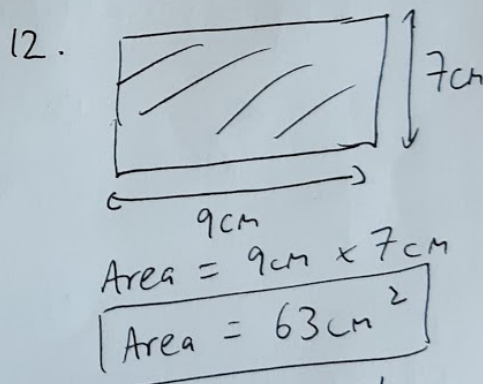 12.
7cm
9cm
Area = 9cm x 7cm
Area = 63cm²